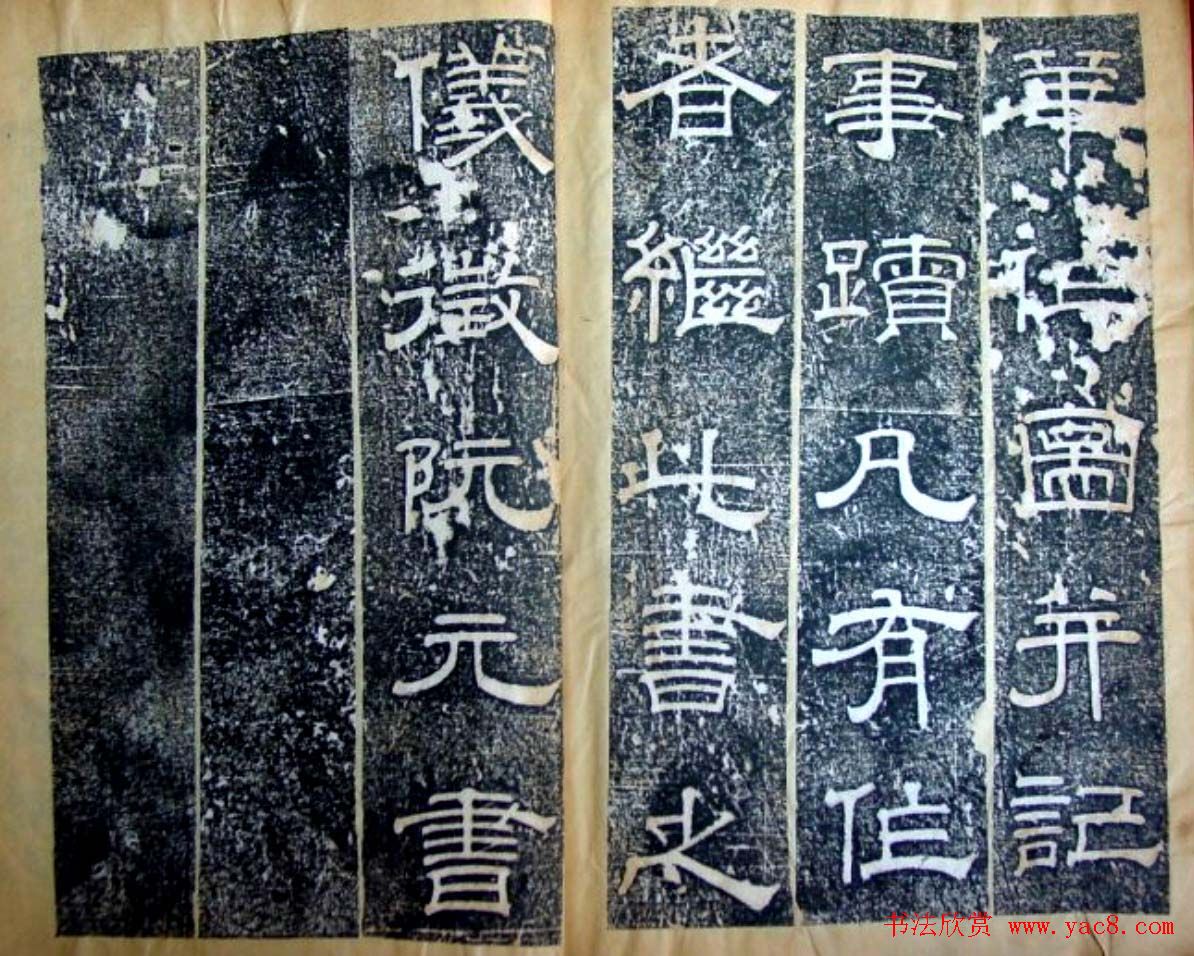 華圖并記
事蹟凡有作
者繼此書之
儀徵阮元書
书法欣赏 www.yac8.com